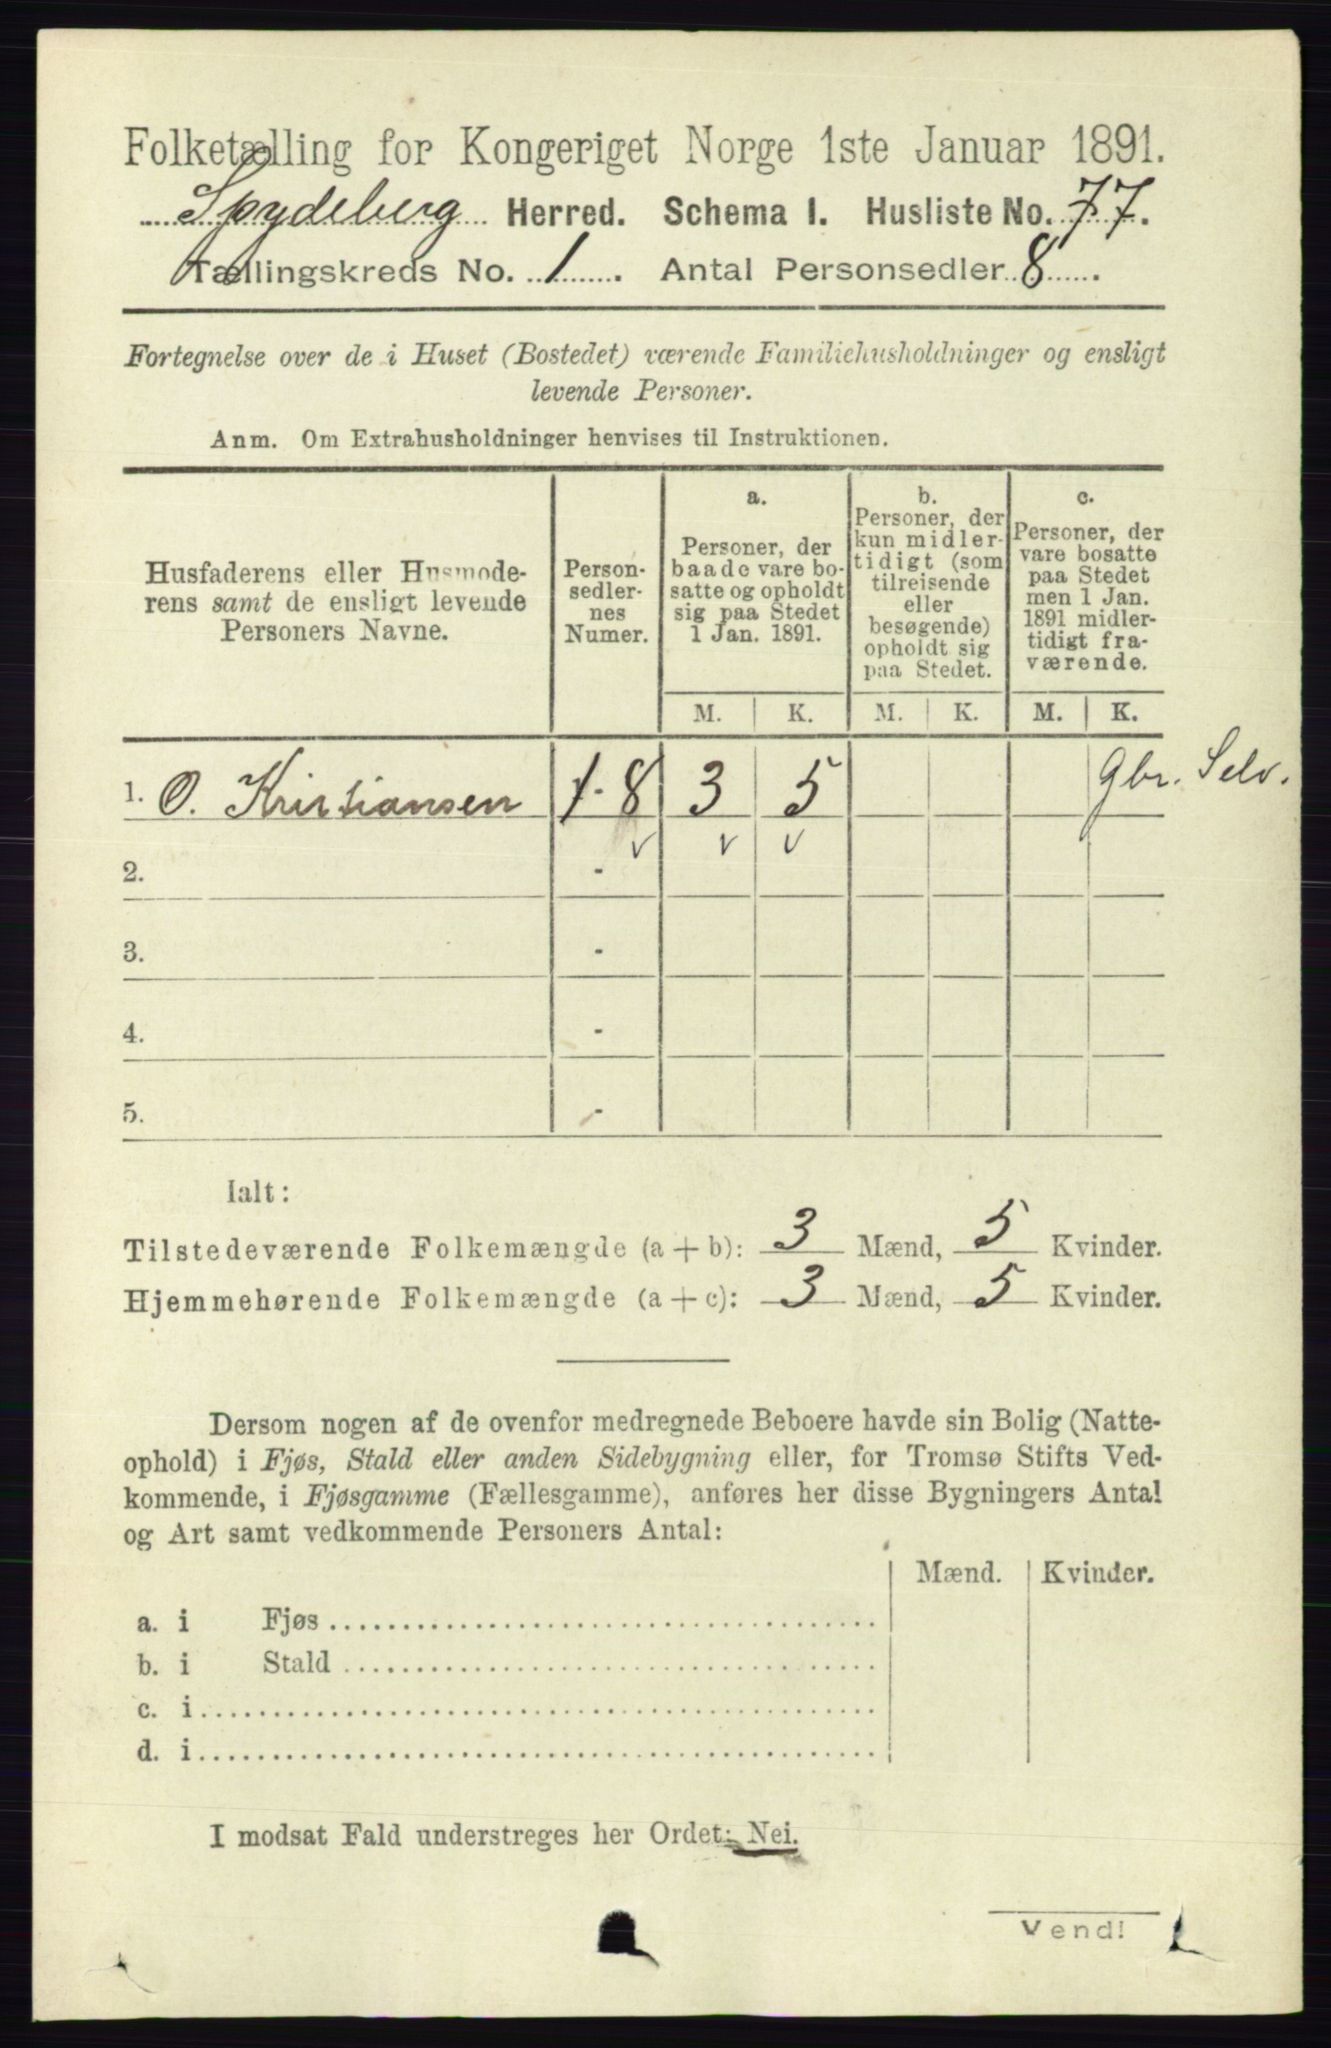 Folketælling for Kongeriget Norge 1ste Januar 1891.
Spydeberg Herred. Schema I. Husliste No. 77.
Tællingskreds No. 1. Antal Personsedler 8.
Fortegnelse over de i Huset (Bostedet) værende Familiehusholdninger og ensligt
levende Personer.
Anm. Om Extrahusholdninger henvises til Instruktionen.
Husfaderens eller Husmode-
rens samt de ensligt levende
Personers Navne.
Person-
sedler-
nes
Numer.
a.
Personer, der
baade vare bo-
satte og opholdt
sig paa Stedet
1 Jan. 1891.
b.
Personer, der
kun midler-
tidigt (som
tilreisende
eller
besøgende)
opholdt sig
paa Stedet.
c.
Personer, der
vare bosatte
paa Stedet
men 1 Jan.
1891 midler-
tidigt fra-
værende.
M. K. M. K. M. K.
1. O. Kristiansen 1 - 8 3 5 Gbr. Selv.
v v v
2. -
3. -
4. -
5. -
Ialt:
Tilstedeværende Folkemængde (a + b): 3 Mænd, 5 Kvinder.
Hjemmehørende Folkemængde (a + c): 3 Mænd, 5 Kvinder.
Dersom nogen af de ovenfor medregnede Beboere havde sin Bolig (Natte-
ophold) i Fjøs, Stald eller anden Sidebygning eller, for Tromsø Stifts Ved-
kommende, i Fjøsgamme (Fællesgamme), anføres her disse Bygningers Antal
og Art samt vedkommende Personers Antal:
Mænd. Kvinder.
a. i Fjøs
b. i Stald
c. i
d. i
I modsat Fald understreges her Ordet: Nei.
Vend!